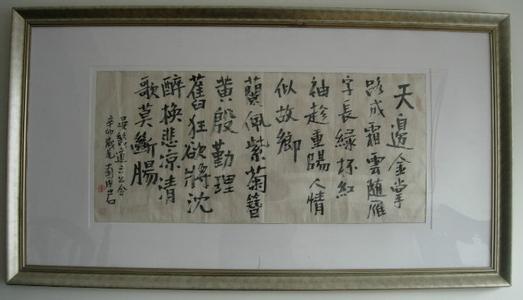 天邊金掌
露成霜雲隨雁
字長綠杯紅
袖趁重陽人情
似故鄉
蘭佩紫菊簪
黃殷勤理
舊狂欲將沈
醉換悲涼清
歌莫斷腸
晏幾道
辛卯